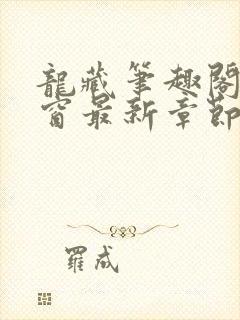 龍藏筆趣閣
窗最新章節
羅成